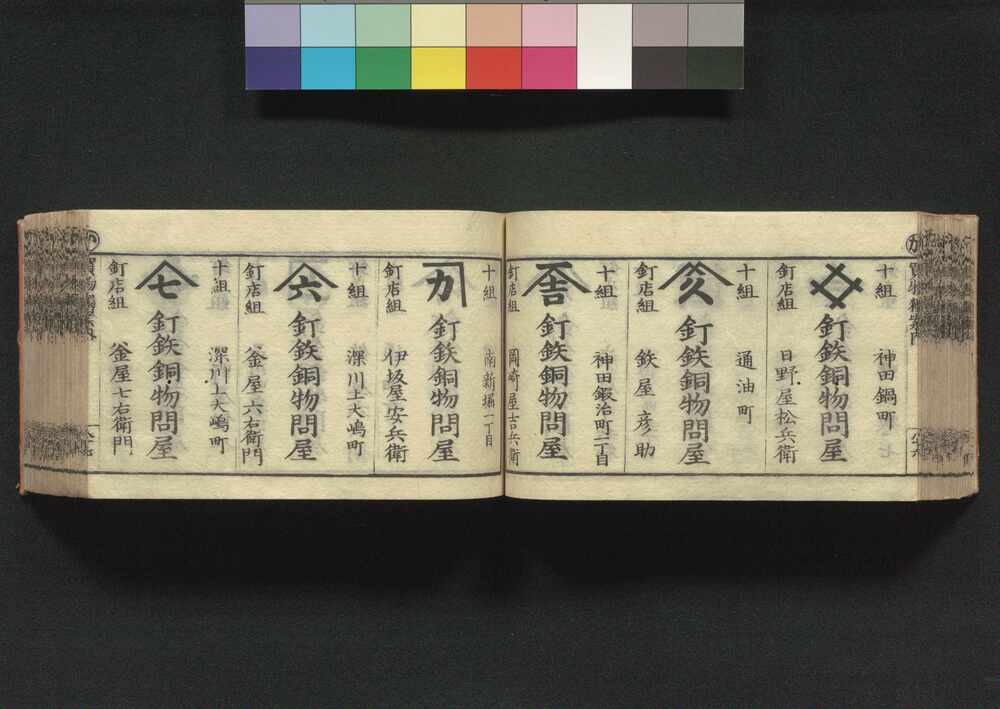 十組 神田鍋町
釘鉄銅物問屋
釘店組 日野屋松兵衛
十組 通油町
釘鉄銅物問屋
釘店組 鉄屋彦助
十組 神田鍛冶町二丁目
吉
釘鉄銅物問屋
釘店組 岡崎屋吉兵衛
十組 南新堀一丁目
カ
釘鉄銅物問屋
釘店組 伊坂屋安兵衛
十組 深川上大嶋町
六
釘鉄銅物問屋
釘店組 釜屋六右衛門
十組 深川上大嶋町
七
釘鉄銅物問屋
釘店組 釜屋七右衛門